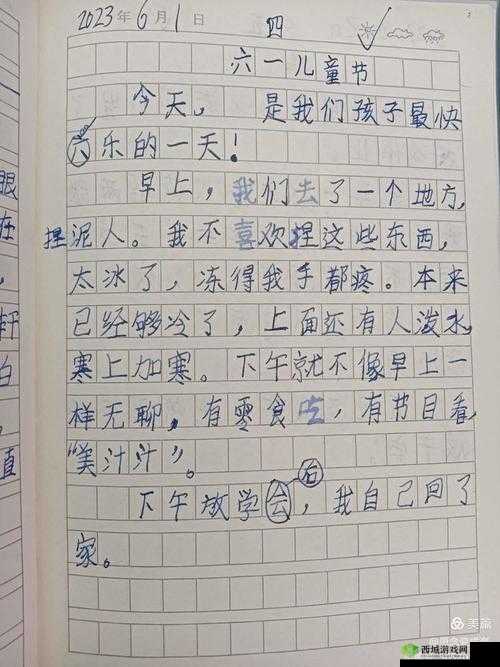 2023年6月1日 四
六一儿童节
今天，是我们孩子最快
乐的一天！
早上，我们去了一个地方，
捏泥人。我不喜欢捏这些东西，
太冰了，冻得我手都疼。本来
已经够冷了，上面还有人泼水，
寒上加寒。下午就不像早上一
样无聊，有零食吃，有节目看，
“美汁汁”。
后
下午放学会，我自己回了
家。
眼
在
，
轩
白
直
美篇
西城游戏网